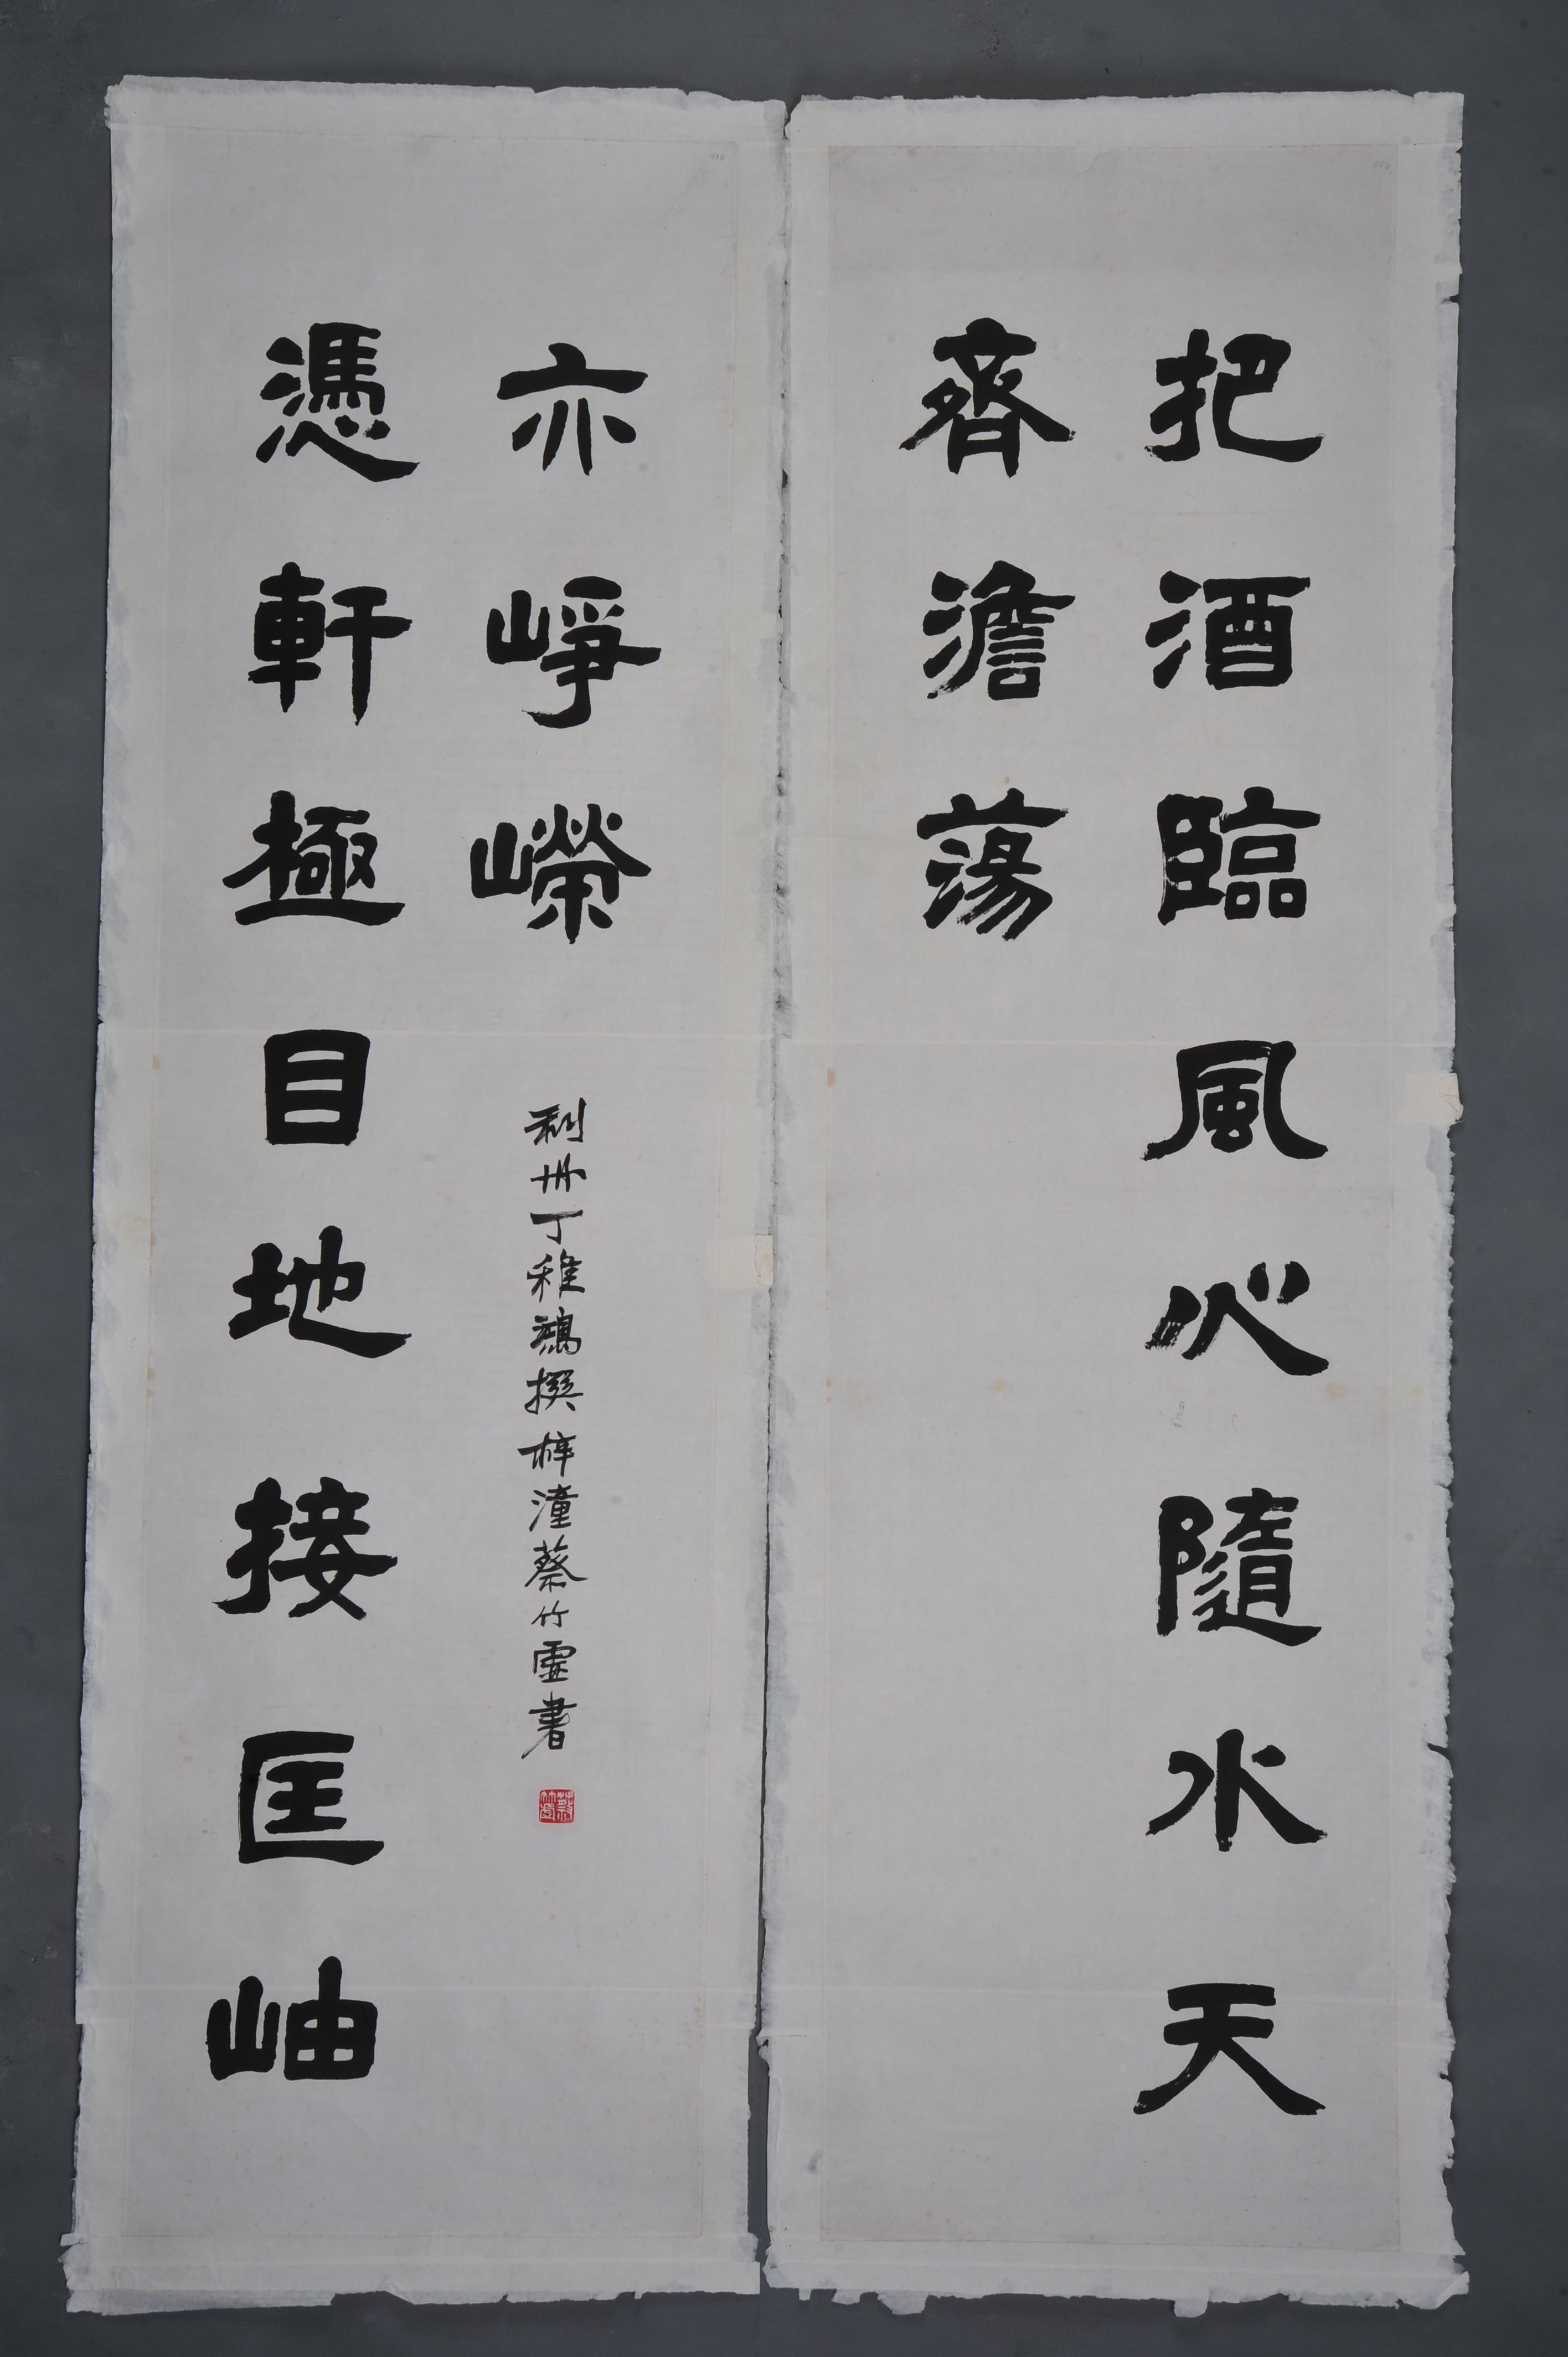 把酒臨風心隨水天
齊澹蕩
憑軒極目地接匡岫
亦崢嶸
利州丁稚鴻撰梓潼蔡竹虛書
蔡竹虛